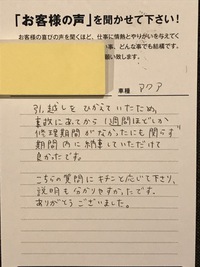 「お客様の声」を聞かせて下さい!
お客様の喜びの声を聞くほど、仕事に情熱とやりがいを与えてく
い事、どんな事でも結構です。
願い致します。
車種 アクア
引っ越しをひかえていたため、
事故にあってから1週間ほどしか
修理期間がなかったにも関らず
期間内に納車していただけて
良かったです。
こちらの質問にキチンと応じて下さり、
説明も分かりやすかったです。
ありがとうございました。